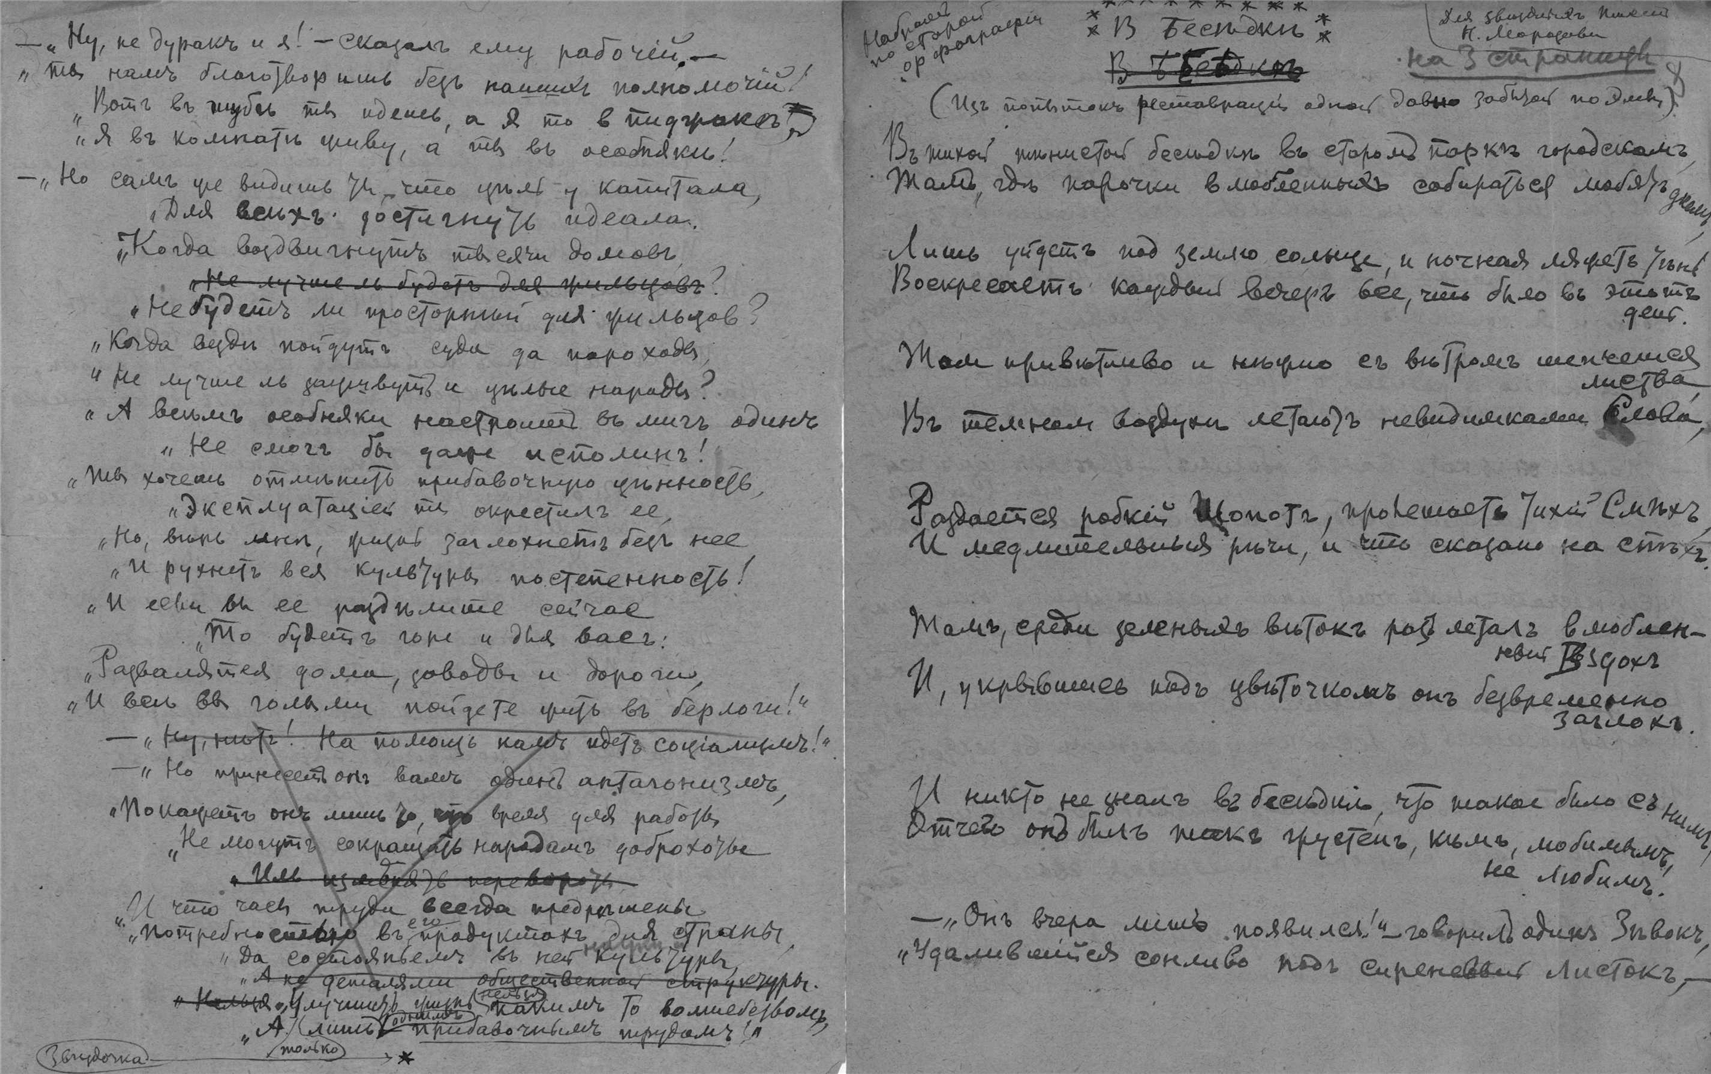 — „Ну, не дуракъ и я! — сказалъ ему рабочій. —
„ты намъ благотворишь безъ нашихъ полномочій!
„Вотъ въ шубѣ ты идешь, а я то в пиджакѣ,
„Я въ комнатѣ живу, а ты въ особнякѣ!
— „Но самъ же видишь ты, что цѣль у капитала,
„Для всѣхъ достигнуть идеала.
„Когда воздвигнутъ тысячи домовъ,
„Не лучше ль будетъ для жильцовъ?
„Не будетъ ли просторный для жильцов?
„Когда вездѣ пойдутъ суда да пароходы,
„Не лучше ль заживутъ и цѣлые народы?
„А всѣмъ особняки настроить въ мигъ одинъ
„Не смогъ бы даже исполинъ!
„Ты хочешь отмѣнить прибавочную цѣнность,
„Эксплуатаціей ты окрестилъ ее,
„Но, вѣрь мнѣ, жизнь заглохнетъ безъ нее
„И рухнетъ вся культуры постепенность!
„И если вы ее раздѣлите сейчас
„То будетъ горе и для васъ:
„Развалятся дома, заводы и дороги,
„И всѣ вы голыми пойдете жить въ берлоги!“
— „Ну, нѣтъ! На помощь намъ идетъ соціализмъ!“
— „Но принесетъ онъ вамъ одинъ антагонизмъ,
„Покажетъ онъ лишь то, что время для работы
„Не могутъ сокращать народамъ доброхоты
„Иль измѣнять перевороты
„И что часы труда всегда предрѣшены
„Потребностью въ его продуктахъ для страны,
„Да состояньемъ въ ней культуры,
„А не деталями общественной структуры.
„Нельзя „Улучшить жизнь нельзя какимъ то волшебствомъ,
„А лишь однимъ прибавочнымъ трудомъ!“
только
Звѣздочка → *
Набрать
по старой
орфографіи
* * * * * * * *
* В Бесѣдкѣ *
В Бесѣдкѣ
Н. Морозовъ
на 3 страницѣ
(Изъ попытокъ реставраціи одной давно забытой поэмы)
Въ тихой тѣнистой бесѣдкѣ въ старомъ паркѣ городскомъ,
Тамъ, гдѣ парочки влюбленныхъ собираться любятъ днемъ,
Лишь уйдетъ под землю солнце, и ночная ляжетъ тѣнь
Воскресаетъ каждый вечеръ все, что было въ этотъ
день.
Там привѣтливо и нѣжно съ вѣтромъ шепчется
листва,
Въ темном воздухѣ летаютъ невидимками Слова,
Раздается робкій Шопотъ, пролетаетъ тихій Смѣхъ,
И медлительныя рѣчи, и что сказано на спѣхъ.
Тамъ, среди зеленыхъ вѣтокъ разъ леталъ влюблен-
ный Вздохъ
И, укрывшись подъ цвѣточкомъ онъ безвременно
заглохъ.
И никто не зналъ въ бесѣдкѣ, что такое было съ нимъ,
Отчего онъ былъ такъ грустенъ, кѣмъ, любимымъ,
не любимъ!
— „Онъ вчера лишь появился!“ — говорилъ одинъ Зѣвокъ,
„Удалившійся сонливо подъ сиреневый листокъ, —